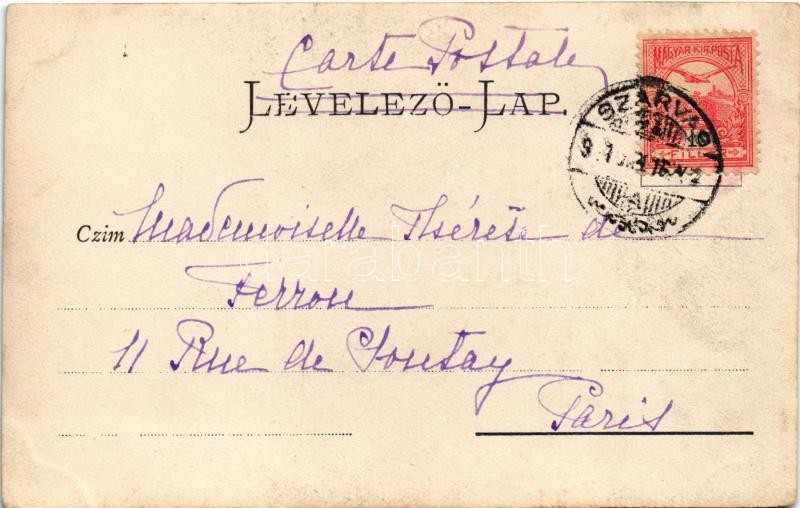 Carte Postale
LEVELEZŐ-LAP.
MAGYAR KIR. POSTA
10
FILL
SZARVAS
Czim Mademoiselle Thérèse de
Ferron
11 Rue de Pontay
Paris
darabanth